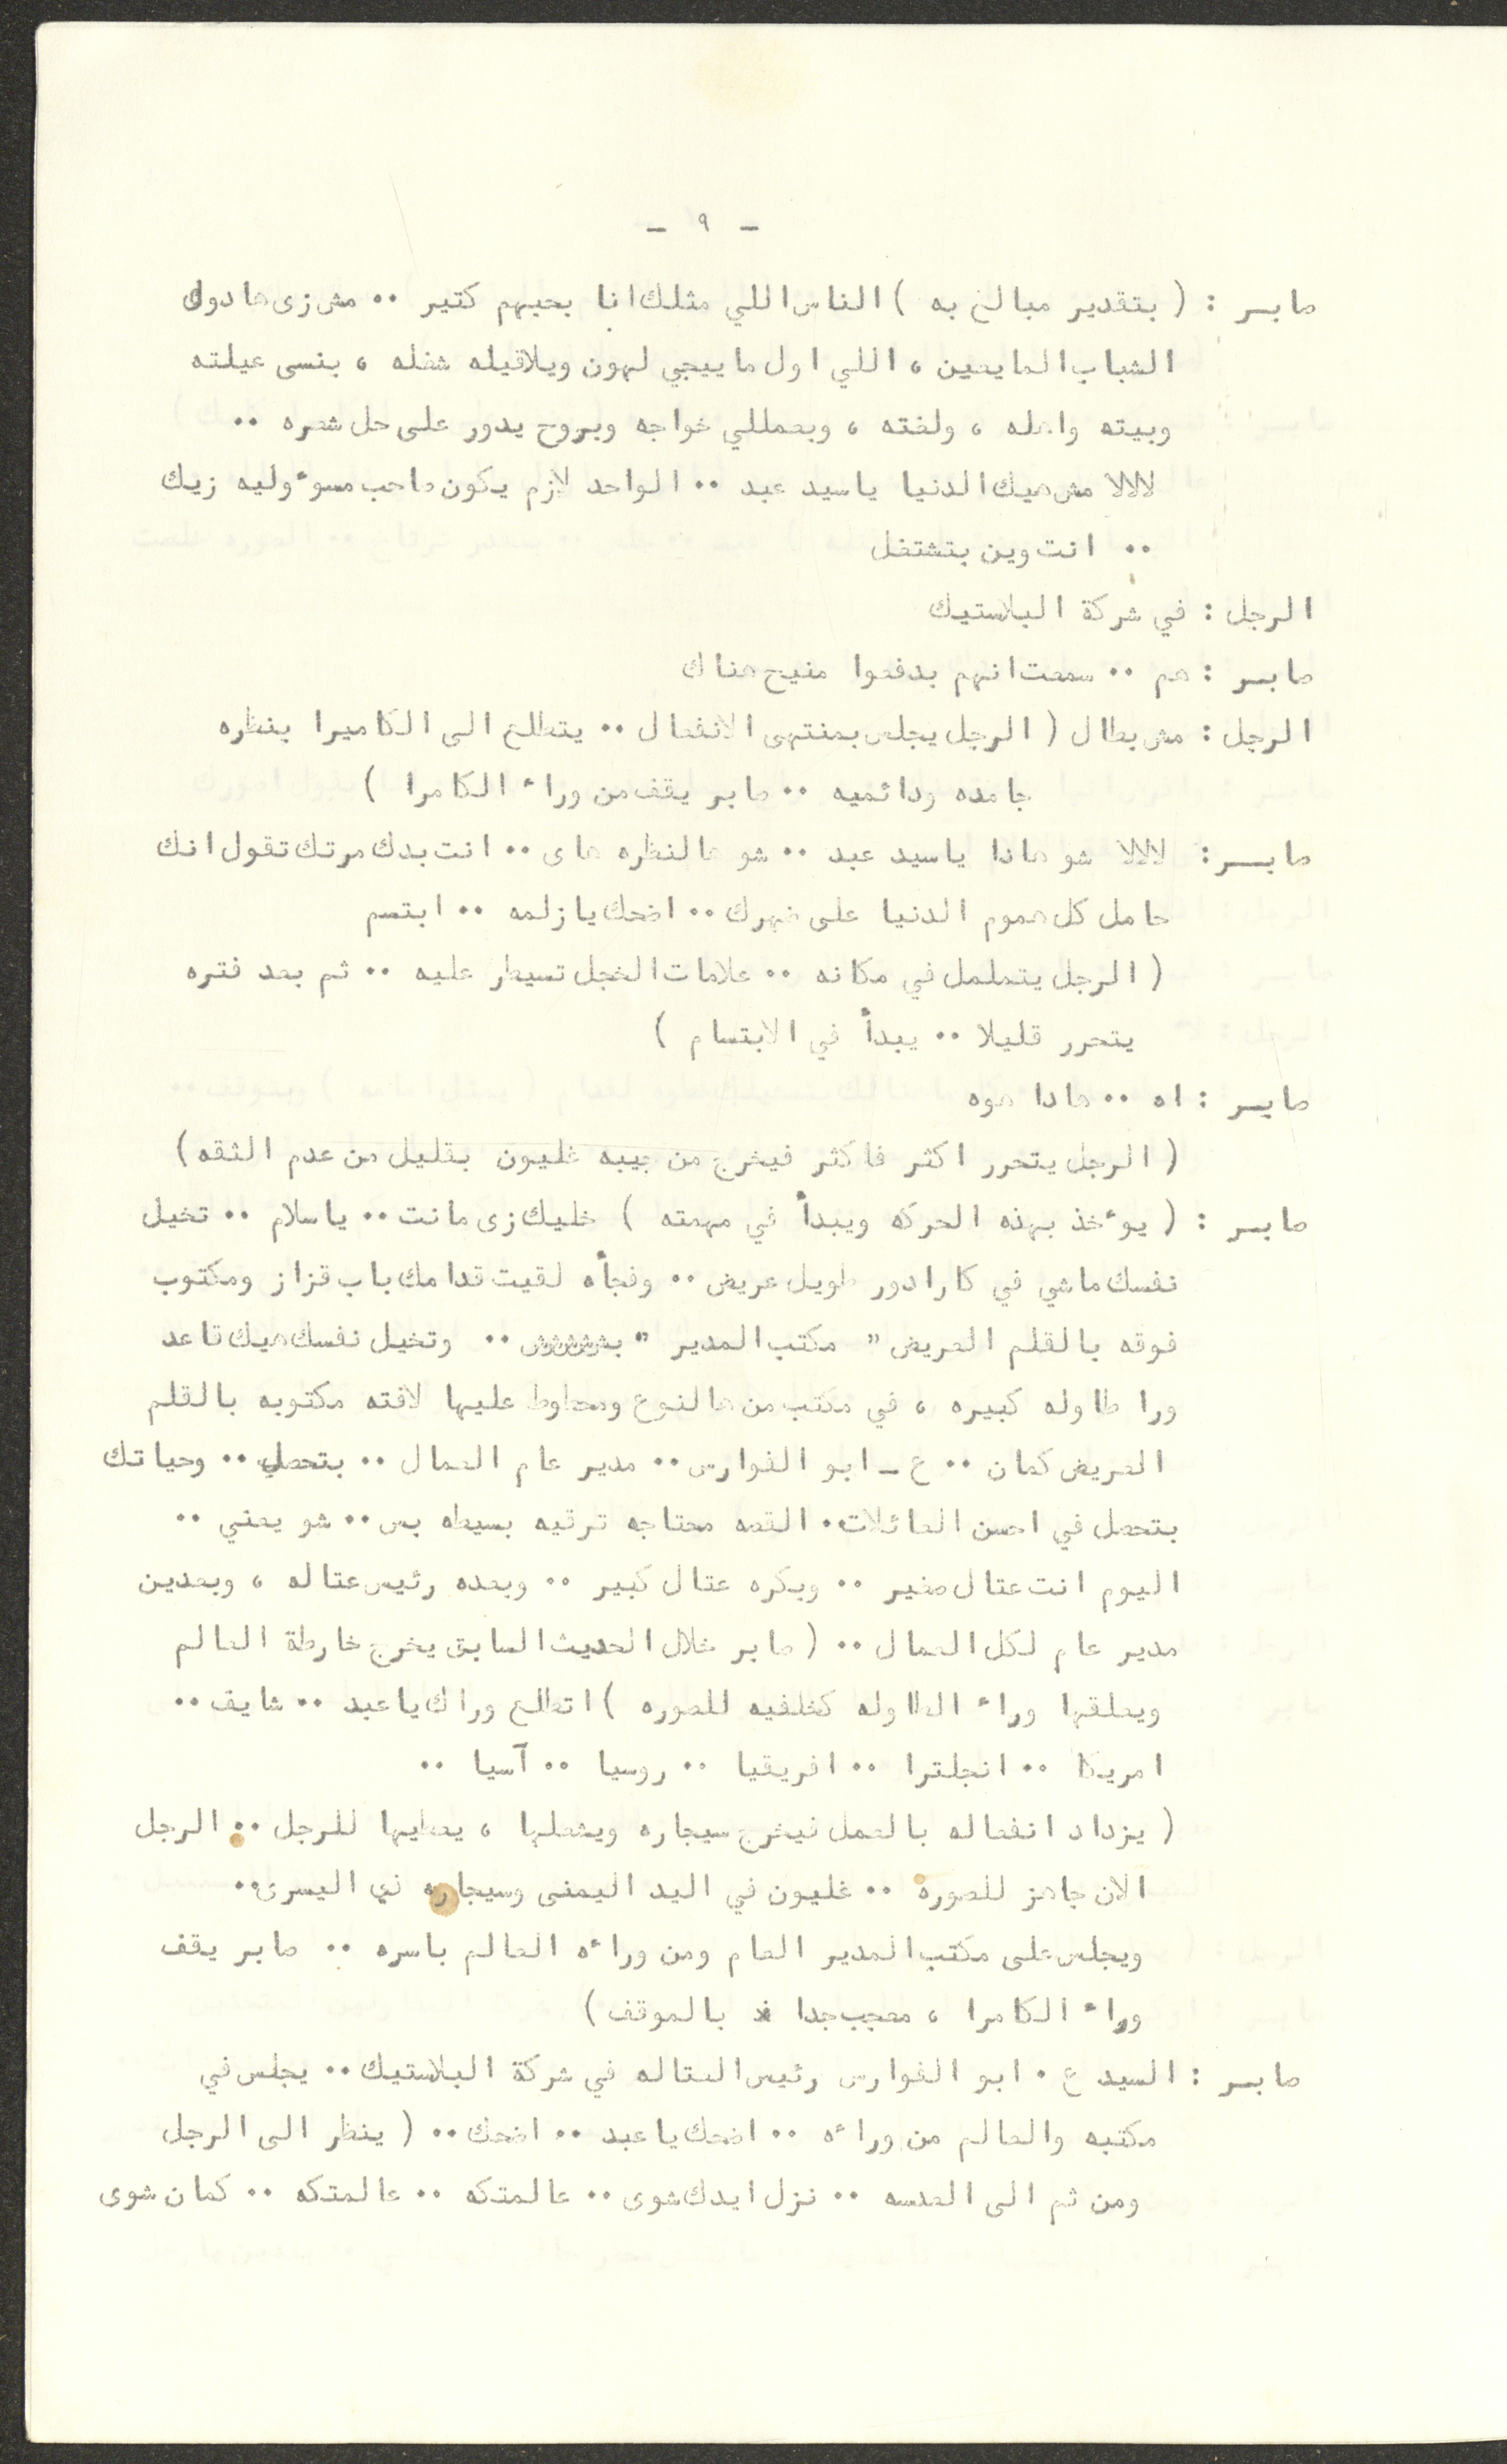 - ٩ -
صابـر : ( بتقدير مبالغ به ) الناس اللي مثلك انا بحبهم كتير .. مش زى هادول
الشباب المايعين ، اللي اول ما ييجي لهون ويلاقيله شغله ، بنسى عيلته
وبيته واهله ، ولغته ، وبعمللي خواجه وبروح يدور على حل شعره ..
لالالا مش هيك الدنيا ياسيد عبد .. الواحد لازم يكون صاحب مسوءوليه زيك
.. انت وين بتشتغل
الرجل : في شركة البلاستيك
صابـر : هم .. سمعت انهم بدفعوا منيح هناك
الرجل : مش بطال ( الرجل يجلس بمنتهى الانفعال .. يتطلع الى الكاميرا بنظره
جامده ودائميه .. صابر يقف من وراء الكامرا )
صابـر : لالالا شو هادا ياسيد عبد .. شو هالنظره هاى .. انت بدك مرتك تقول انك
حامل كل هموم الدنيا على ضهرك .. اضحك يا زلمه .. ابتسم
( الرجل يتململ في مكانه .. علامات الخجل تسيطر عليه .. ثم بعد فتره
يتحرر قليلا .. يبدأ في الابتسام )
صابـر : اه .. هادا هوه
( الرجل يتحرر اكثر فاكثر فيخرج من جيبه غليون بقليل من عدم الثقه )
صابـر : ( يوءخذ بهذه الحركه ويبدأ في مهمته ) خليك زى مانت .. ياسلام .. تخيل
نفسك ماشي في كارادور طويل عريض .. وفجأه لقيت قدامك باب قزاز ومكتوب
فوقه بالقلم العريض " مكتب المدير " بشششش .. وتخيل نفسك هيك قاعد
ورا طاوله كبيره ، في مكتب من هالنوع ومحطوط عليها لافته مكتوبه بالقلم
العريض كمان .. ع - ابو الفوارس .. مدير عام العمال .. بتحصل .. وحياتك
بتحصل في احسن العائلات . القصه محتاجه ترقيه بسيطه بس .. شو يعني ..
اليوم انت عتال صغير .. وبكره عتال كبير .. وبعده رئيس عتاله ، وبعدين
مدير عام لكل العمال .. ( صابر خلال الحديث السابق يخرج خارطة العالم
ويعلقها وراء الطاوله كخلفيه للصوره ) اتطلع وراك ياعبد .. شايف ..
امريكا .. انجلترا .. افريقيا .. روسيا .. آسيا ..
( يزداد انفعاله بالعمل فيخرج سيجاره ويشعلها ، يعطيها للرجل .. الرجل
الان جاهز للصوره .. غليون في اليد اليمنى وسيجاره في اليسرى ..
ويجلس على مكتب المدير العام ومن وراءه العالم باسره .. صابر يقف
وراء الكامرا ، معجب جدا بالموقف )
صابـر : السيد ع . ابو الفوارس رئيس العتاله في شركة البلاستيك .. يجلس في
مكتبه والعالم من وراءه .. اضحك ياعبد .. اضحك .. ( ينظر الى الرجل
ومن ثم الى العدسه .. نزل ايدك شوى .. عالمتكه .. عالمتكه .. كمان شوى